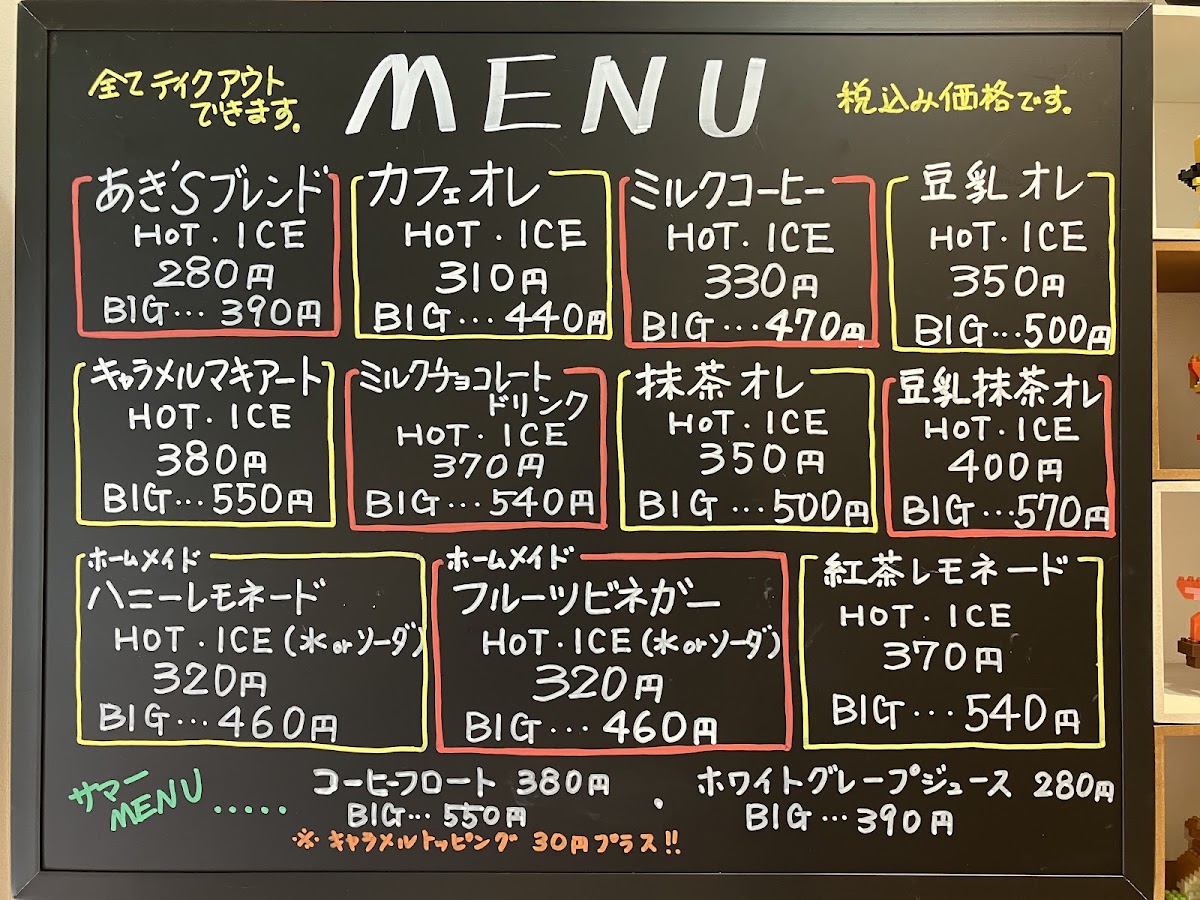 全てテイクアウト
できます。
MENU
税込み価格です。
あき'Sブレンド
HOT・ICE
280円
BIG…390円
カフェオレ
HOT・ICE
310円
BIG…440円
ミルクコーヒー
HOT・ICE
330円
BIG…470円
豆乳オレ
HOT・ICE
350円
BIG…500円
キャラメルマキアート
HOT・ICE
380円
BIG…550円
ミルクチョコレート
ドリンク
HOT・ICE
370円
BIG…540円
抹茶オレ
HOT・ICE
350円
BIG…500円
豆乳抹茶オレ
HOT・ICE
400円
BIG…570円
ホームメイド
ハニーレモネード
HOT・ICE(水orソーダ)
320円
BIG…460円
ホームメイド
フルーツビネガー
HOT・ICE(水orソーダ)
320円
BIG…460円
紅茶レモネード
HOT・ICE
370円
BIG…540円
サマー
MENU……
コーヒーフロート 380円
BIG…550円
・ホワイトグレープジュース 280円
BIG…390円
※キャラメルトッピング 30円プラス!!